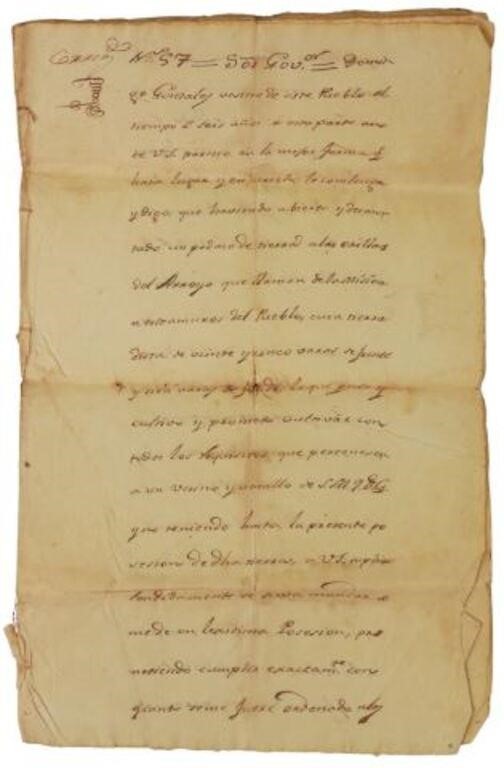 Nº 57 = Sor Govor = Domin
go Gonzales vesino de este Pueblo el
tiempo seis años a esta parte an
te V.S. paresco en la mejor forma q
haia lugar y
y digo que haviendo abierto y
tado un pedaso de tierra a las orillas
del Arroyo que llaman de la Mision
a extramuros del Pueblo, cuia tierra
de veinte y cinco varas de frente
y varas de
cultivo y prometo cultivar con
todos los requisitos que pertenesen
a un Vesino y vasallo de S.M. q. D. G.
y no teniendo hasta la presente po
sesion de dha tierra, a V.S. suplico
rendidamente se sirva mandar se
me dé en lexitima Posesion, pro
metiendo cumplir exactamte con
quanto tiene ordenado